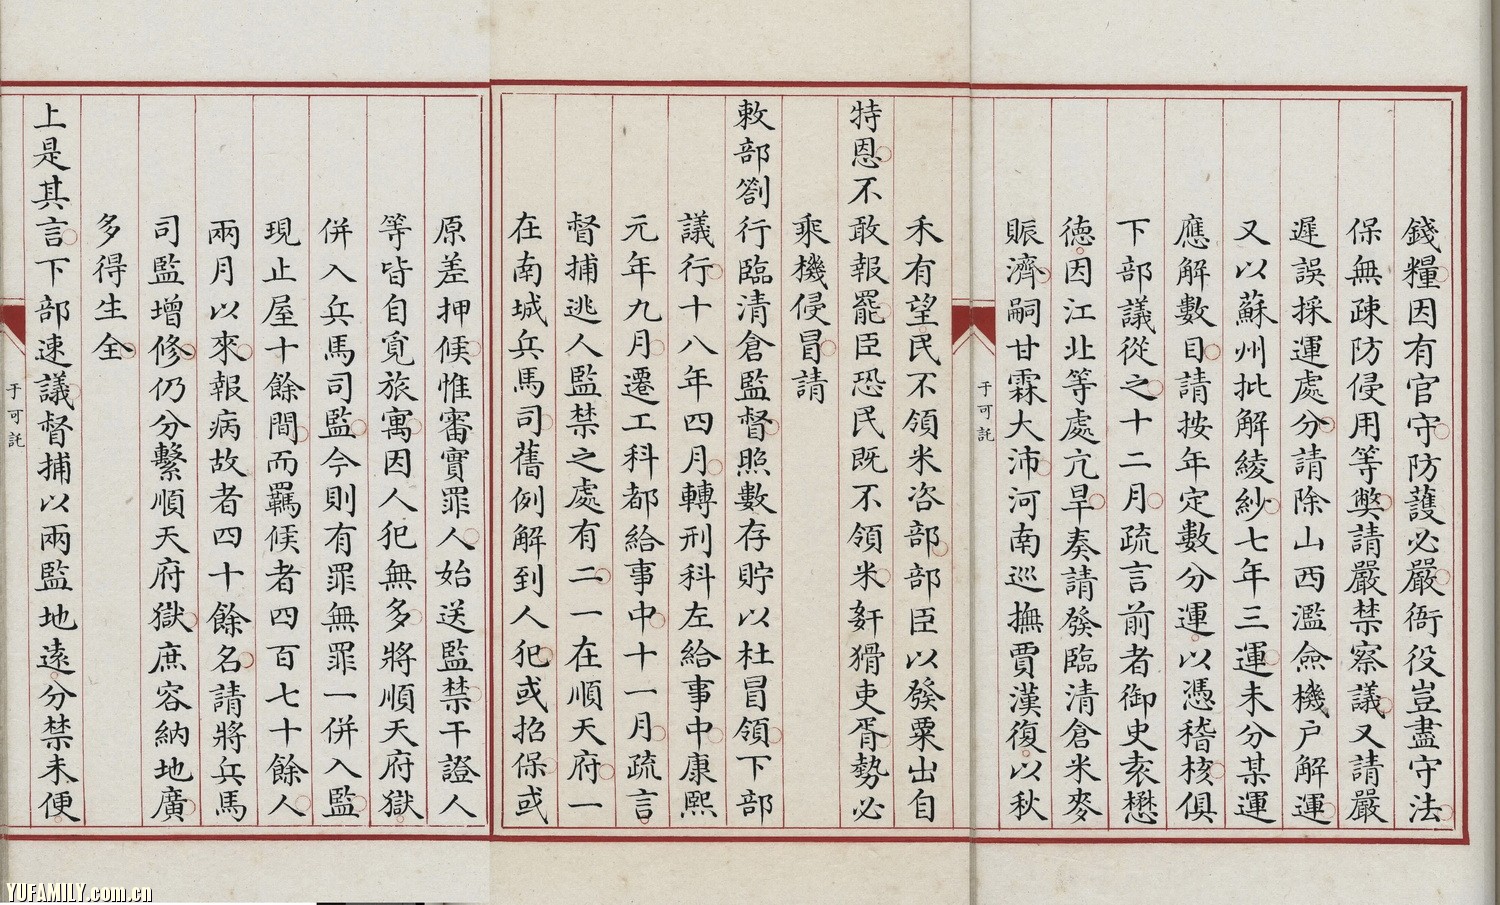 錢糧因有官守防護必嚴衙役豈盡守法
保無疎防侵用等獘請嚴禁察議又請嚴
遲誤採運處分請除山西濫僉機戶解運
又以蘇州批解綾紗七年三運未分某運
應解數目請按年定數分運以憑稽核俱
下部議從之十二月疏言前者御史袁懋
德因江北等處亢旱奏請發臨清倉米麥
賑濟嗣甘霖大沛河南巡撫賈漢復以秋
于可託
禾有望民不領米咨部部臣以發粟出自
特恩不敢報罷臣恐民既不領米奸猾吏胥勢必
乘機侵冒請
敕部劄行臨清倉監督照數存貯以杜冒領下部
議行十八年四月轉刑科左給事中康熙
元年九月遷工科都給事中十一月疏言
督捕逃人監禁之處有二一在順天府一
在南城兵馬司舊例解到人犯或招保或
原差押候惟審實罪人始送監禁干證人
等皆自覓旅寓因人犯無多將順天府獄
併入兵馬司監今則有罪無罪一併入監
現止屋十餘間而羈候者四百七十餘人
兩月以來報病故者四十餘名請將兵馬
司監增修仍分繫順天府獄庶容納地廣
多得生全
上是其言下部速議督捕以兩監地遠分禁未便
于可託
YUFAMILY.com.cn